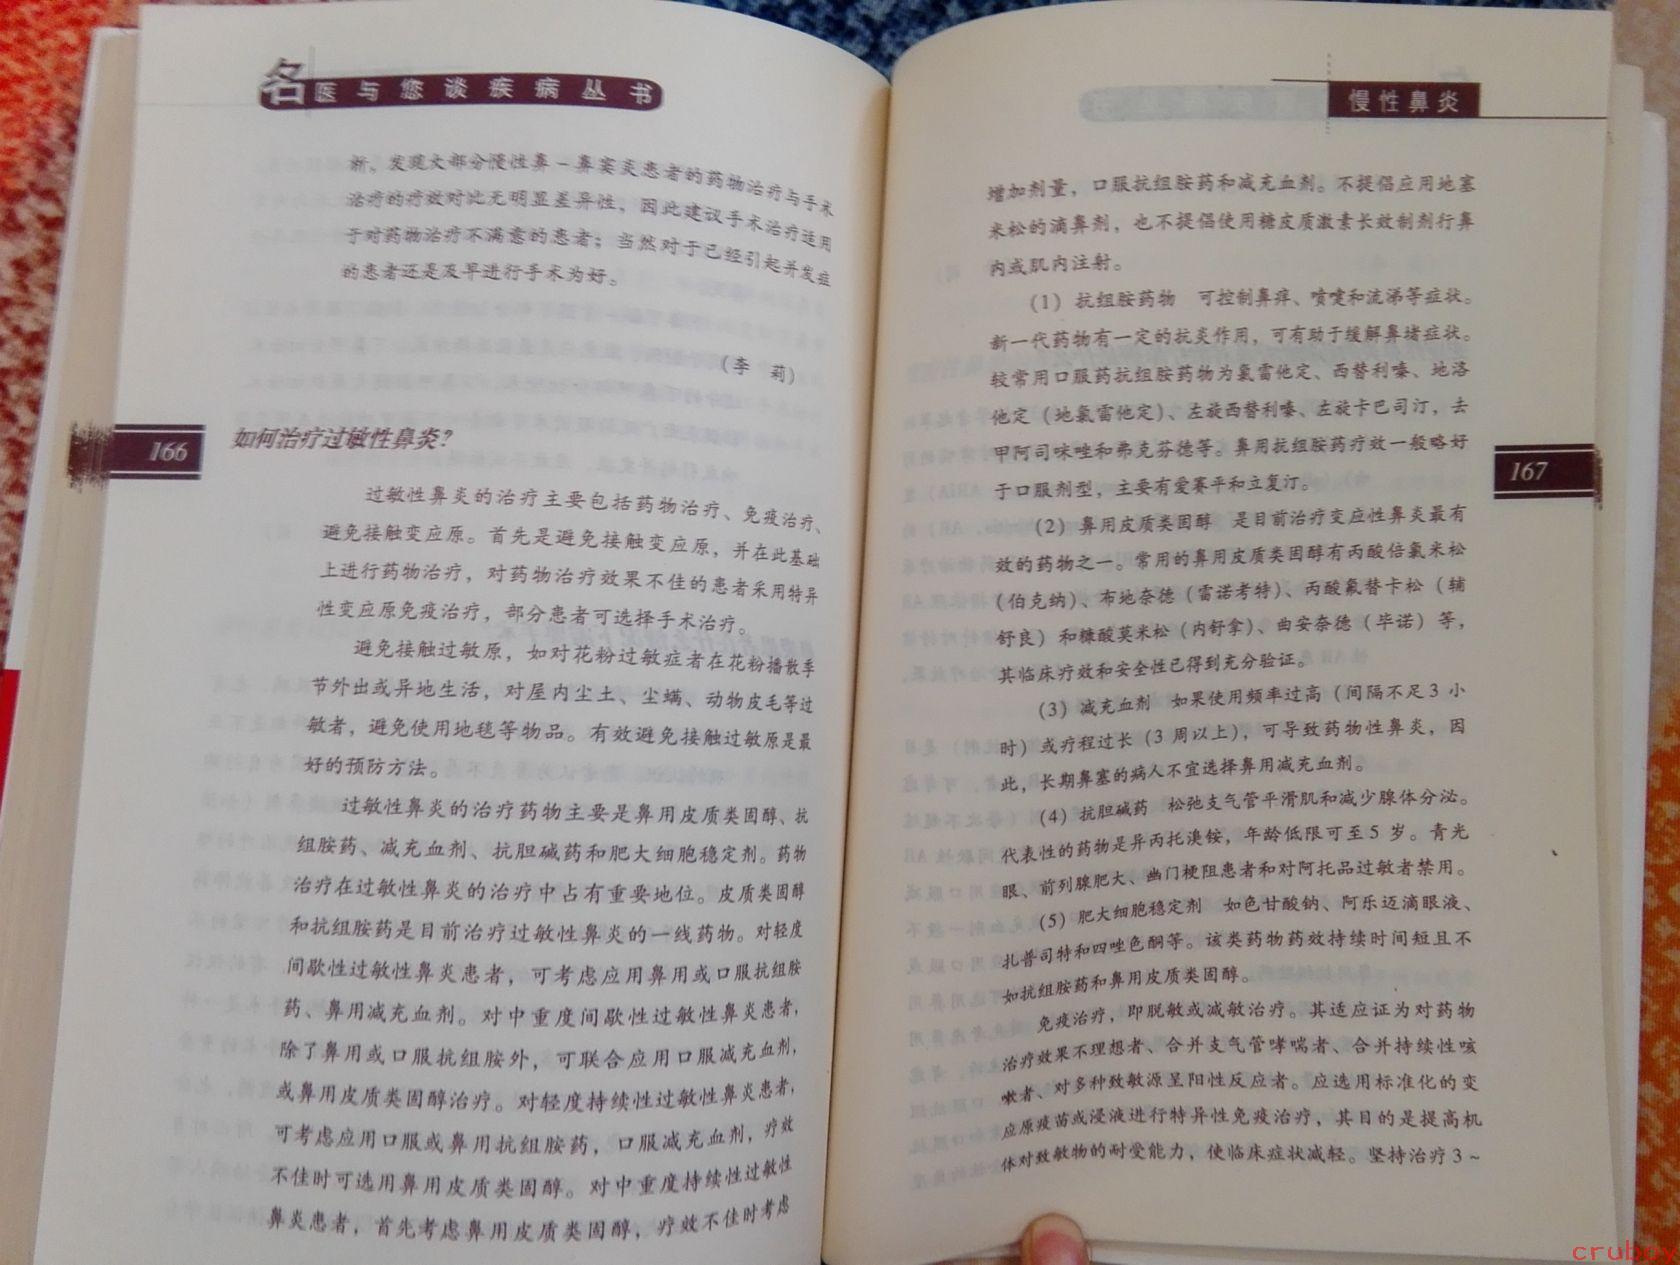 名医与您谈疾病丛书
新。发现大部分慢性鼻-鼻窦炎患者的药物治疗与手术
治疗的疗效对比无明显差异性，因此建议手术治疗适用
于对药物治疗不满意的患者；当然对于已经引起并发症
的患者还是及早进行手术为好。
（李 莉）
166
如何治疗过敏性鼻炎？
过敏性鼻炎的治疗主要包括药物治疗、免疫治疗、
避免接触变应原。首先是避免接触变应原，并在此基础
上进行药物治疗，对药物治疗效果不佳的患者采用特异
性变应原免疫治疗，部分患者可选择手术治疗。
避免接触过敏原，如对花粉过敏症者在花粉播散季
节外出或异地生活，对屋内尘土、尘螨、动物皮毛等过
敏者，避免使用地毯等物品。有效避免接触过敏原是最
好的预防方法。
过敏性鼻炎的治疗药物主要是鼻用皮质类固醇、抗
组胺药、减充血剂、抗胆碱药和肥大细胞稳定剂。药物
治疗在过敏性鼻炎的治疗中占有重要地位。皮质类固醇
和抗组胺药是目前治疗过敏性鼻炎的一线药物。对轻度
间歇性过敏性鼻炎患者，可考虑应用鼻用或口服抗组胺
药、鼻用减充血剂。对中重度间歇性过敏性鼻炎患者，
除了鼻用或口服抗组胺外，可联合应用口服减充血剂，
或鼻用皮质类固醇治疗。对轻度持续性过敏性鼻炎患者，
可考虑应用口服或鼻用抗组胺药，口服减充血剂，疗效
不佳时可选用鼻用皮质类固醇。对中重度持续性过敏性
鼻炎患者，首先考虑鼻用皮质类固醇，疗效不佳时考虑
慢性鼻炎
增加剂量，口服抗组胺药和减充血剂。不提倡应用地塞
米松的滴鼻剂，也不提倡使用糖皮质激素长效制剂行鼻
内或肌内注射。
（1）抗组胺药物 可控制鼻痒、喷嚏和流涕等症状。
新一代药物有一定的抗炎作用，可有助于缓解鼻堵症状。
较常用口服药抗组胺药物为氯雷他定、西替利嗪、地洛
他定（地氯雷他定）、左旋西替利嗪、左旋卡巴司汀，去
甲阿司咪唑和弗克芬德等。鼻用抗组胺药疗效一般略好
于口服剂型，主要有爱赛平和立复汀。
167
（2）鼻用皮质类固醇 是目前治疗变应性鼻炎最有
效的药物之一。常用的鼻用皮质类固醇有丙酸倍氯米松
（伯克纳）、布地奈德（雷诺考特）、丙酸氟替卡松（辅
舒良）和糠酸莫米松（内舒拿）、曲安奈德（毕诺）等，
其临床疗效和安全性已得到充分验证。
（3）减充血剂 如果使用频率过高（间隔不足3小
时）或疗程过长（3周以上），可导致药物性鼻炎，因
此，长期鼻塞的病人不宜选择鼻用减充血剂。
（4）抗胆碱药 松弛支气管平滑肌和减少腺体分泌。
代表性的药物是异丙托溴铵，年龄低限可至5岁。青光
眼、前列腺肥大、幽门梗阻患者和对阿托品过敏者禁用。
（5）肥大细胞稳定剂 如色甘酸钠、阿乐迈滴眼液、
扎普司特和四唑色酮等。该类药物药效持续时间短且不
如抗组胺药和鼻用皮质类固醇。
免疫治疗，即脱敏或减敏治疗。其适应证为对药物
治疗效果不理想者、合并支气管哮喘者、合并持续性咳
嗽者、对多种致敏源呈阳性反应者。应选用标准化的变
应原疫苗或浸液进行特异性免疫治疗，其目的是提高机
体对致敏物的耐受能力，使临床症状减轻。坚持治疗3～
cruboy